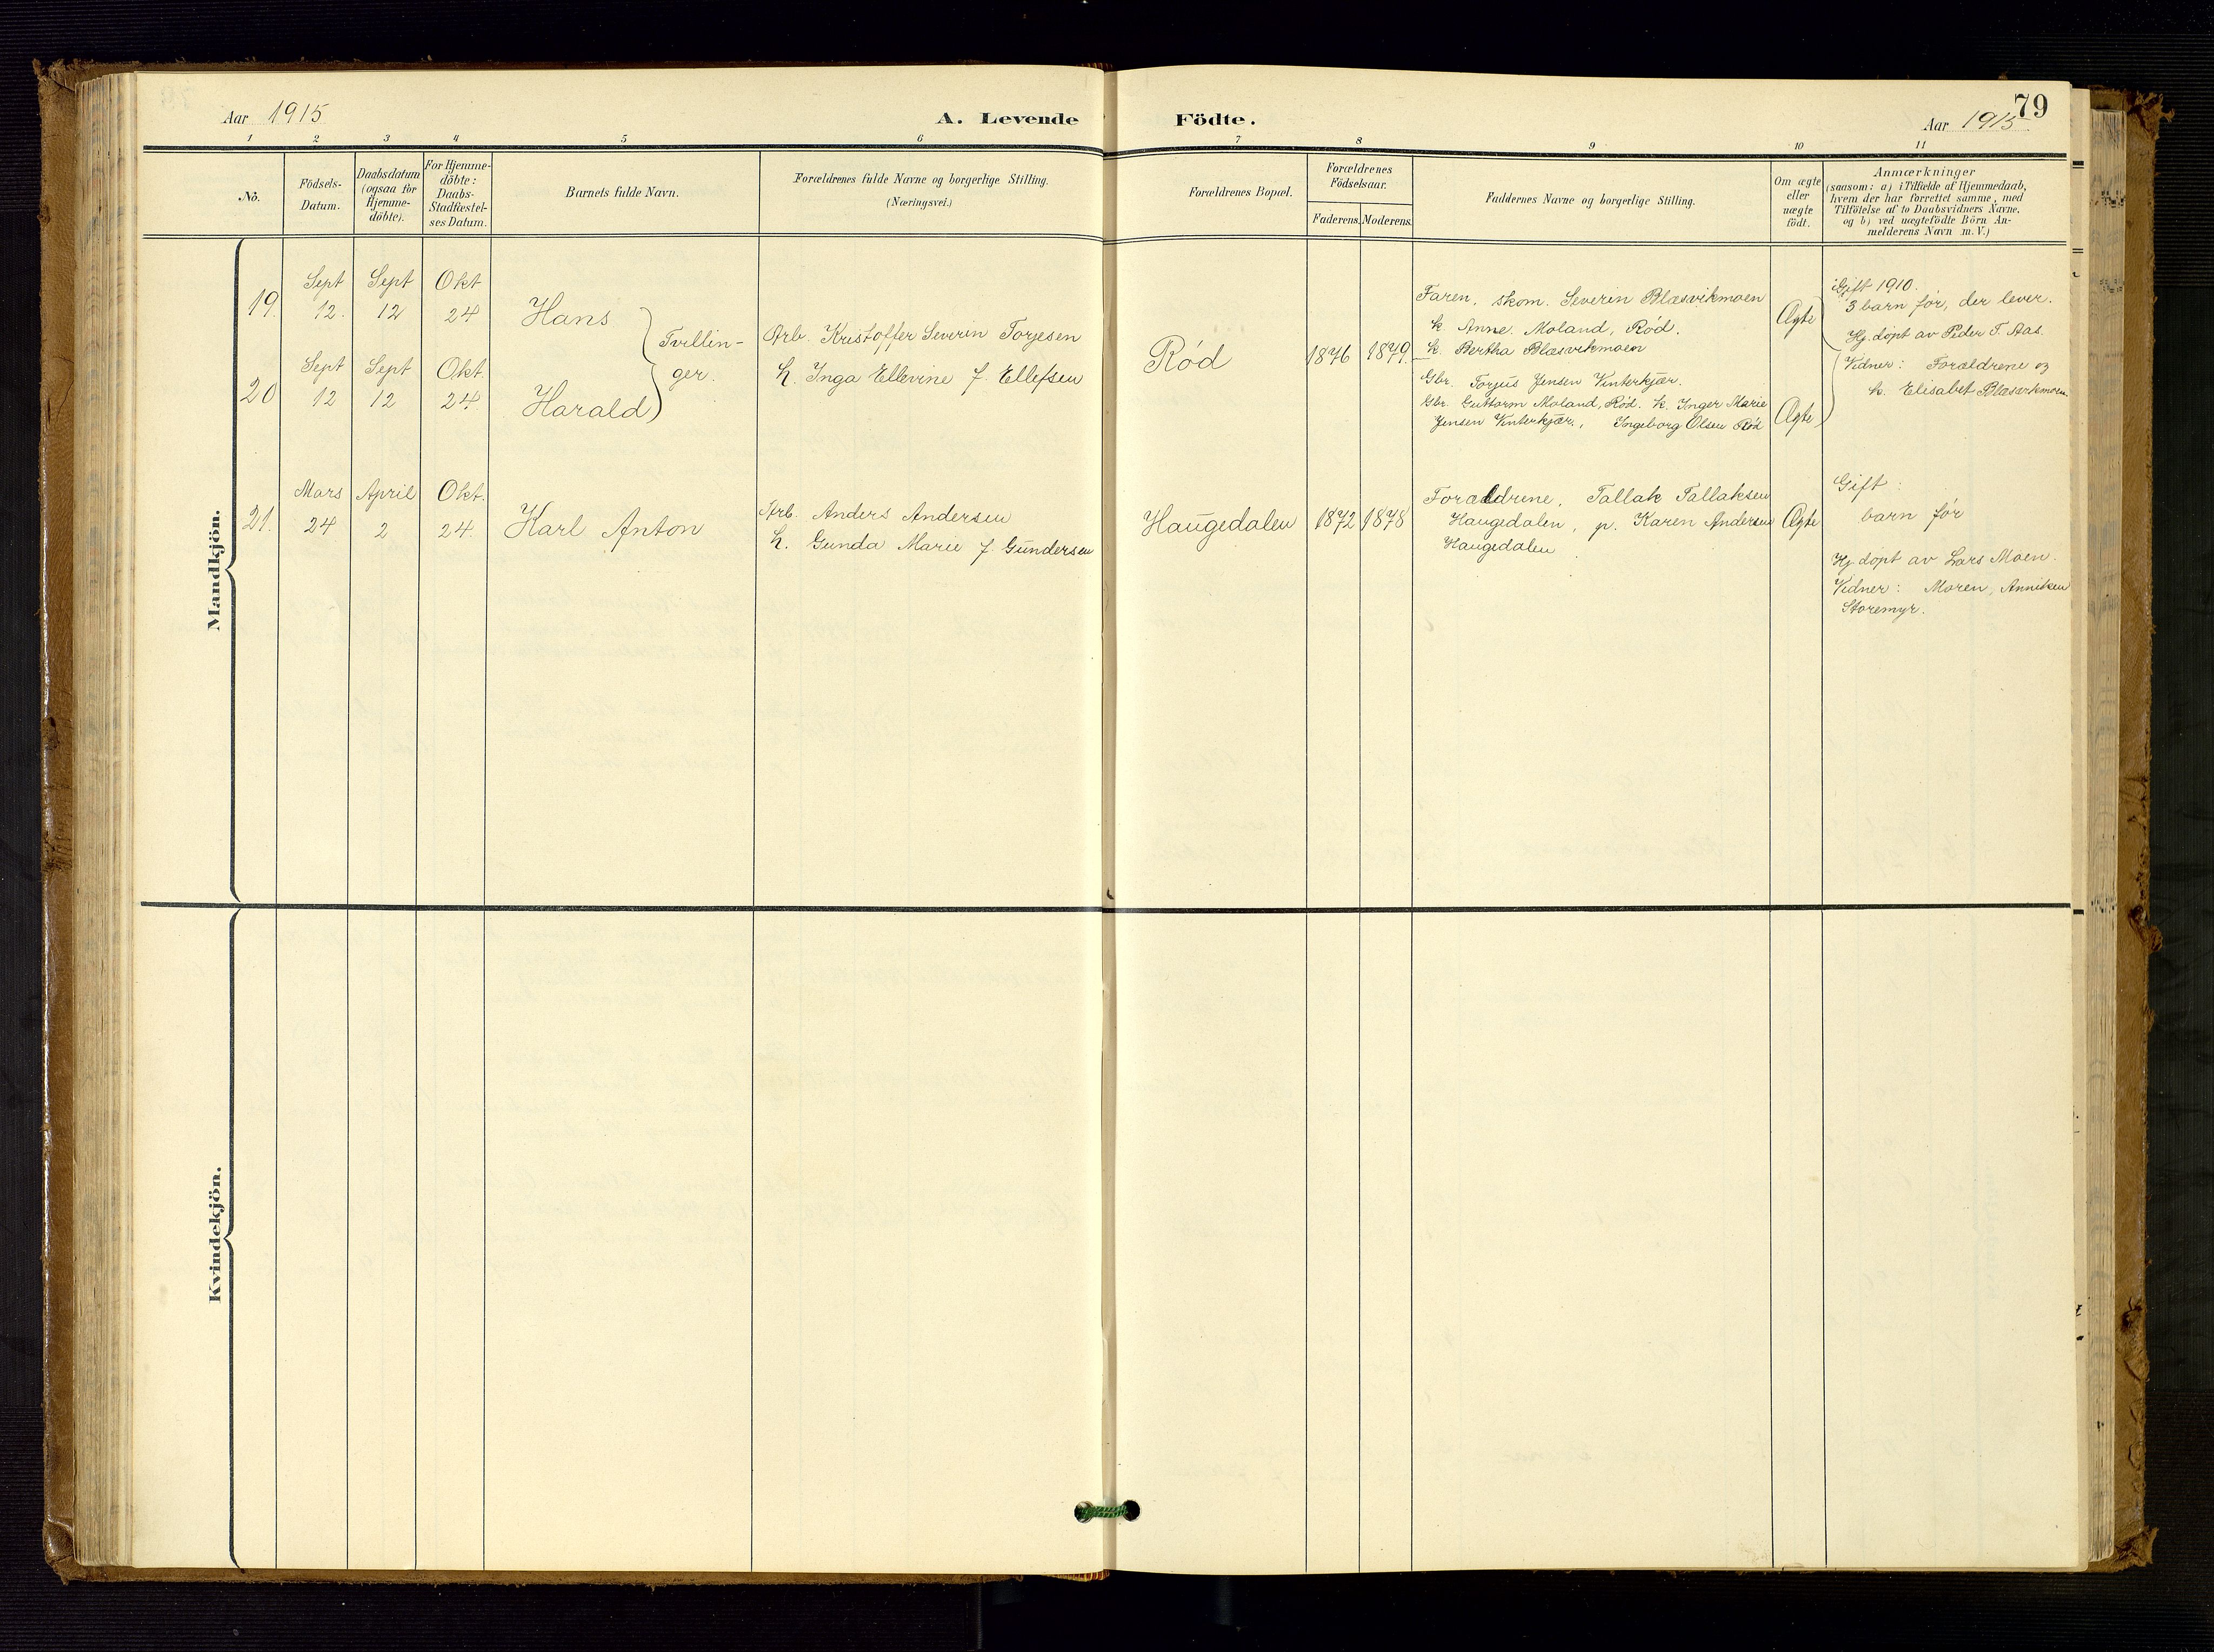 Aar 1915
A. Levende
Födte.
79
Aar 1915
1 2 3 4 5 6 7 8 9 10 11
No.
Födsels-
Datum.
Daabsdatum
(ogsaa for
Hjemme-
döbte).
For Hjemme-
döbte:
Daabs-
Stadfæstel-
ses Datum.
Barnets fulde Navn.
Forældrenes fulde Navne og borgerlige Stilling.
(Næringsvei.)
Forældrenes Bopæl.
Forældrenes
Födselsaar.
Faderens. Moderens.
Faddernes Navne og borgerlige Stilling.
Om ægte
eller
uægte
födt.
Anmærkninger
(saasom: a) i Tilfælde af Hjemmedaab,
hvem der har forrettet samme, med
Tilföielse af to Daabsvidners Navne,
og b) ved uægtefödte Börn An-
melderens Navn m. V.)
Mandkjön.
19.
Sept
12.
Sept
12
Okt
24
Hans
20
Sept
12
Sept
12
Okt.
24.
Harald
Tvillin-
ger.
Arb. Kristoffer Severin Torjesen
h. Inga Ellevine f. Ellefsen
Rød
1876
1879
Faren, skom. Severin Blæsvikmoen
k. Anne Moland, Rød.
k. Bertha Blæsvikmoen
Gbr. Torjus Jensen Vinterkjær.
Gbr. Guttorm Moland, Rød. k. Inger Marie
Jensen Vinterkjær., Ingeborg Olsen Rød
Ægte
Ægte
Gift 1910.
3 barn før, der lever.
Hj. døpt av Peder T. Aas.
Vidner: Forældrene og
k. Elisabet Blæsvikmoen.
21.
Mars
24
April
2
Okt.
24.
Karl Anton
Arb. Anders Andersen
h. Gunda Marie f. Gundersen
Haugedalen
1872
1878
Forældrene, Tallak Tallaksen
Haugedalen, p. Karen Andersen
Haugedalen.
Ægte
Gift:
barn før
Hj. døpt av Lars Moen.
Vidner: Moren, Anniken
Storemyr.
Kvindekjön.